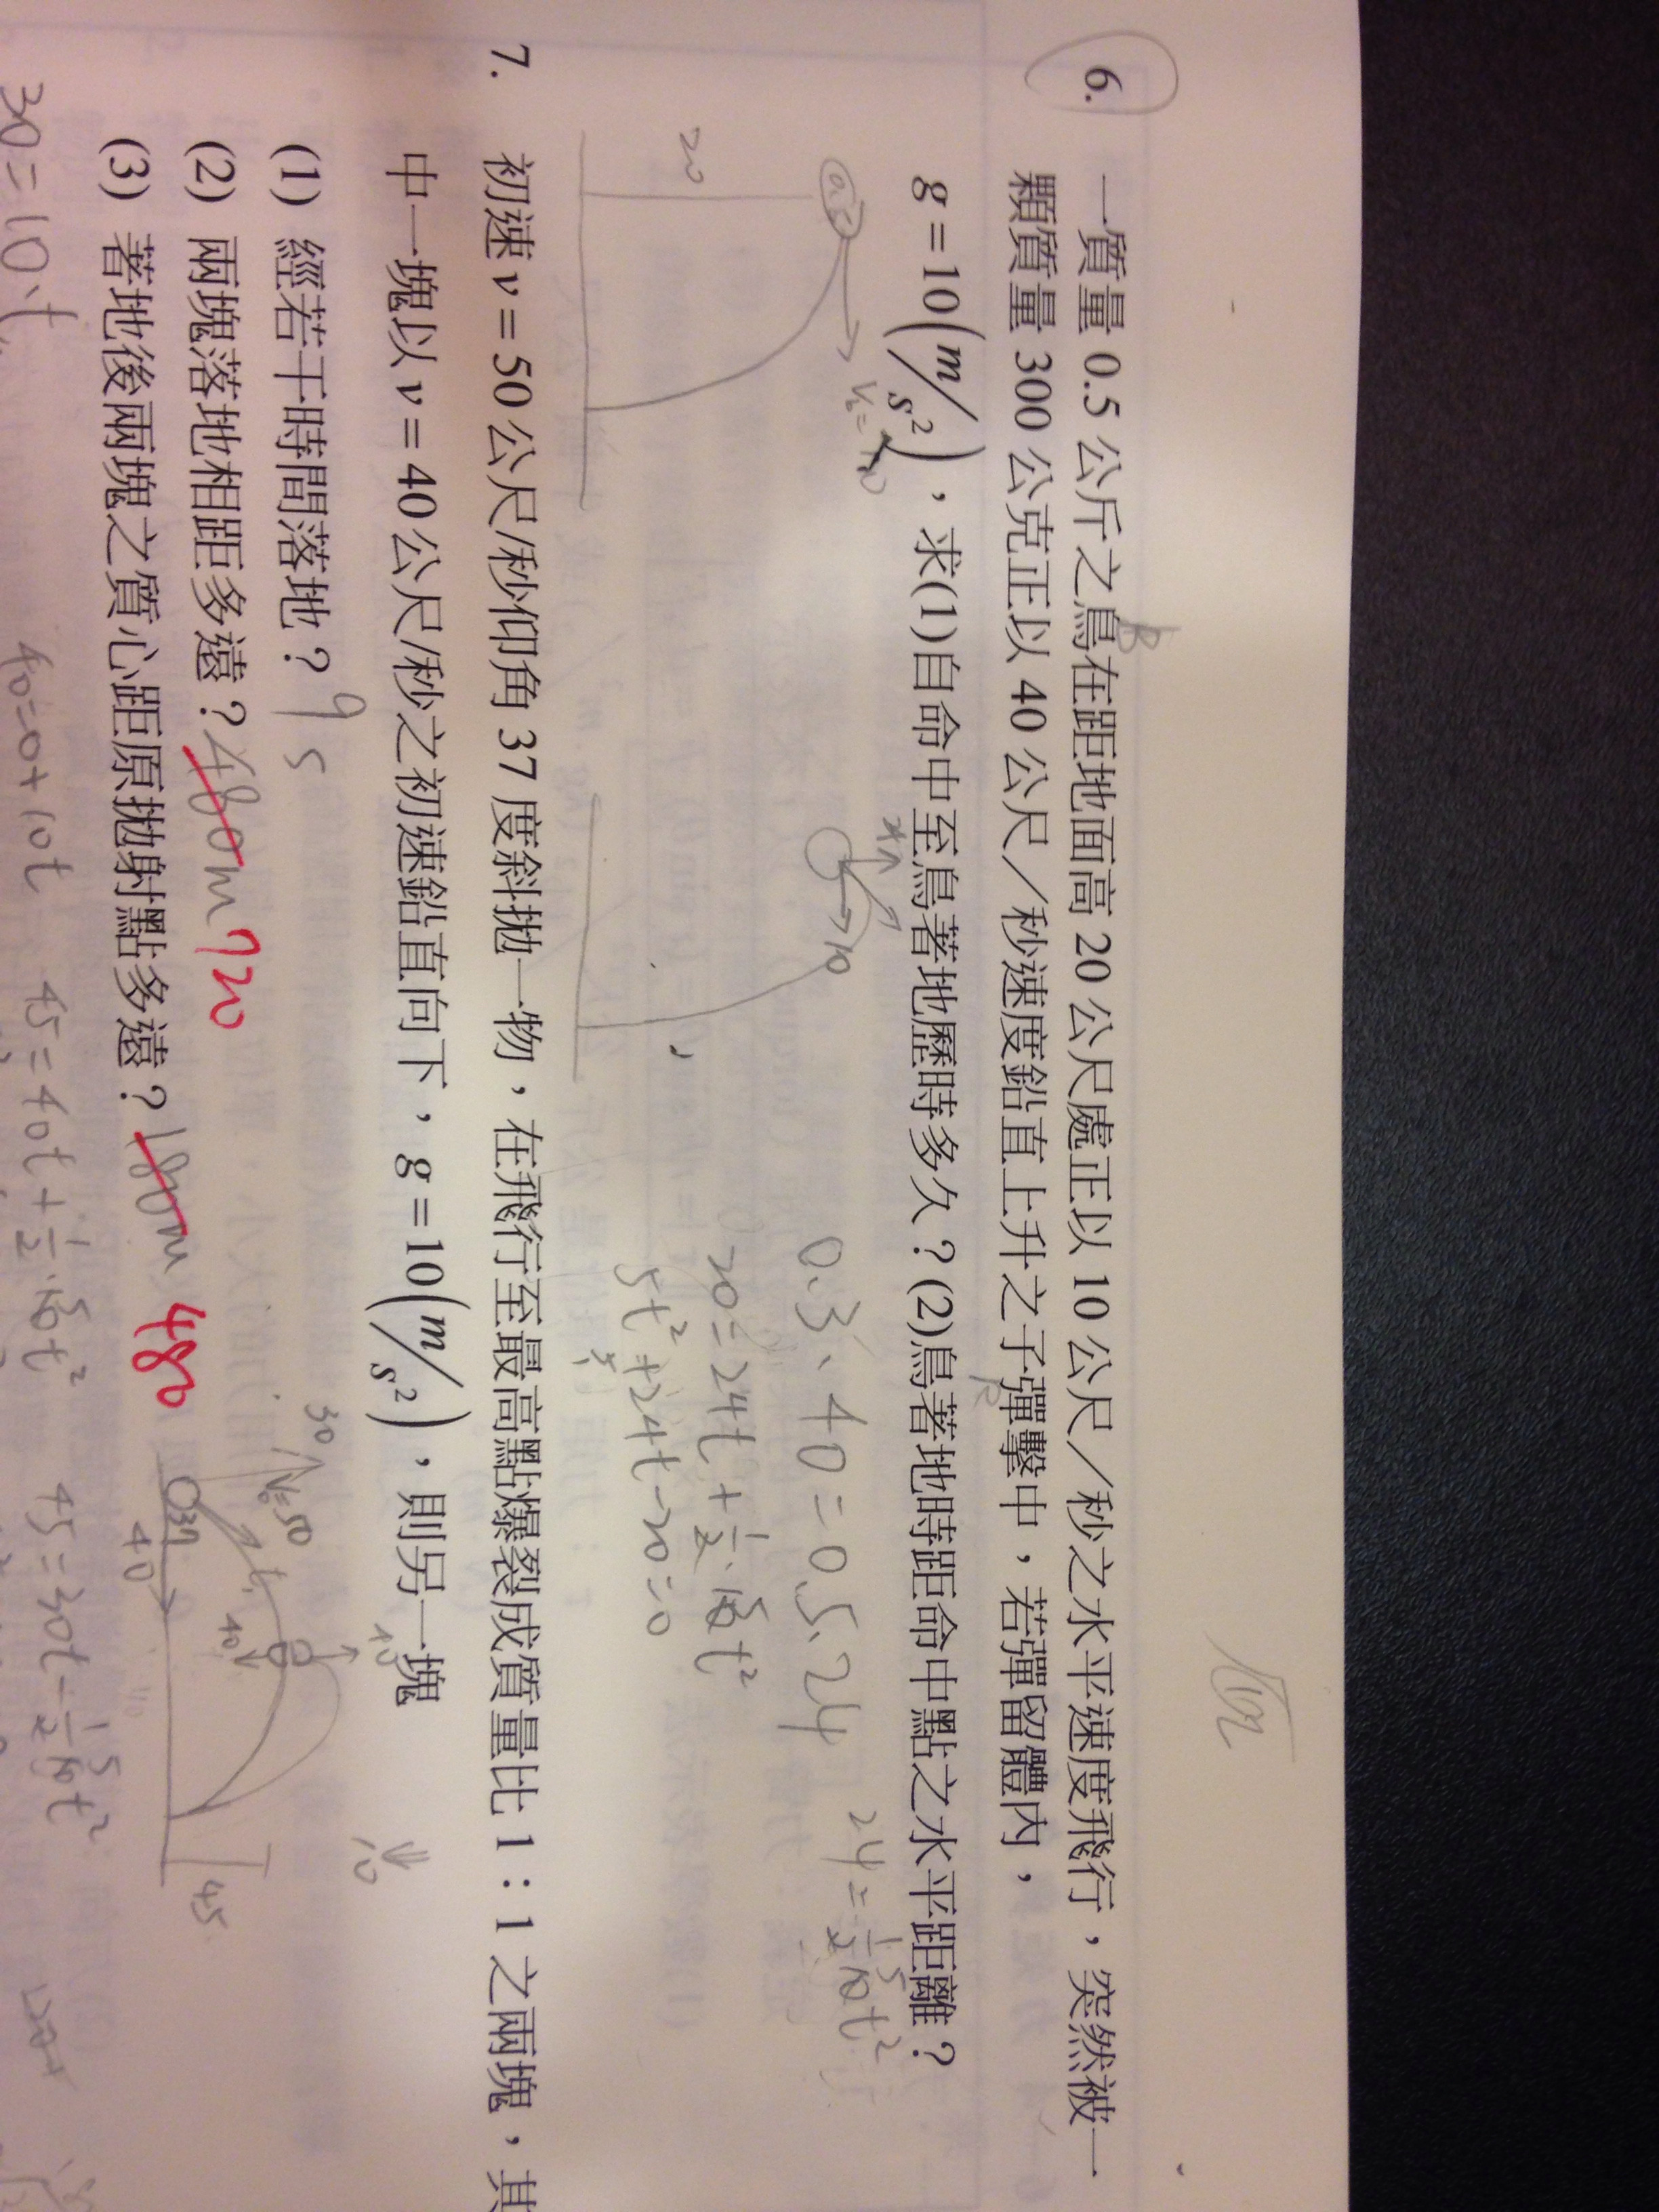 6. 一質量 0.5 公斤之鳥在距地面高 20 公尺處正以 10 公尺／秒之水平速度飛行，突然被一
B
顆質量 300 公克正以 40 公尺／秒速度鉛直上升之子彈擊中，若彈留體內，
g = 10(m/s²)，求(1)自命中至鳥著地歷時多久？(2)鳥著地時距命中點之水平距離？
20
10
0.3、40 = 0.5、24
20 = 24t + 1/2·10t²
5
5t² + 24t - 20 = 0
24 = 1/2 10t²
5
7. 初速 v = 50 公尺/秒仰角 37 度斜拋一物，在飛行至最高點爆裂成質量比 1：1 之兩塊，其
中一塊以 v = 40 公尺/秒之初速鉛直向下，g = 10(m/s²)，則另一塊
(1) 經若干時間落地？ 9 s
(2) 兩塊落地相距多遠？ 480m 720
(3) 著地後兩塊之質心距原拋射點多遠？ 180m 480
30
V₀=50
37
40
40
40
45
10
30 = 10、t
40 = 0 + 10t
45 = 40t + 1/2·10t²
5
45 = 30t - 1/2 10t²
5